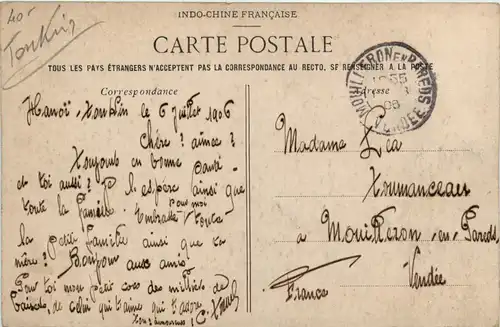 40-
Tonkin
INDO-CHINE FRANÇAISE
CARTE POSTALE
TOUS LES PAYS ÉTRANGERS N'ACCEPTENT PAS LA CORRESPONDANCE AU RECTO, SE RENSEIGNER A LA POSTE
Correspondance
Adresse
MOUILLERON EN PAREDS
VENDÉE
Hanoï, Tonkin le 6 Juillet 1906
Chère ? aimée ?
Toujours en bonne santé
et toi aussi ? Je l'espère ainsi que
toute la famille. Embrasse pour moi toute
la petite famille ainsi que ta
mère ? Bonjour aux amis
Pour toi mon petit des milliers de
baisers, de celui qui t'aime qui t'adore
Madame Léa
à Mouilleron-en-Pareds
Vendée
France